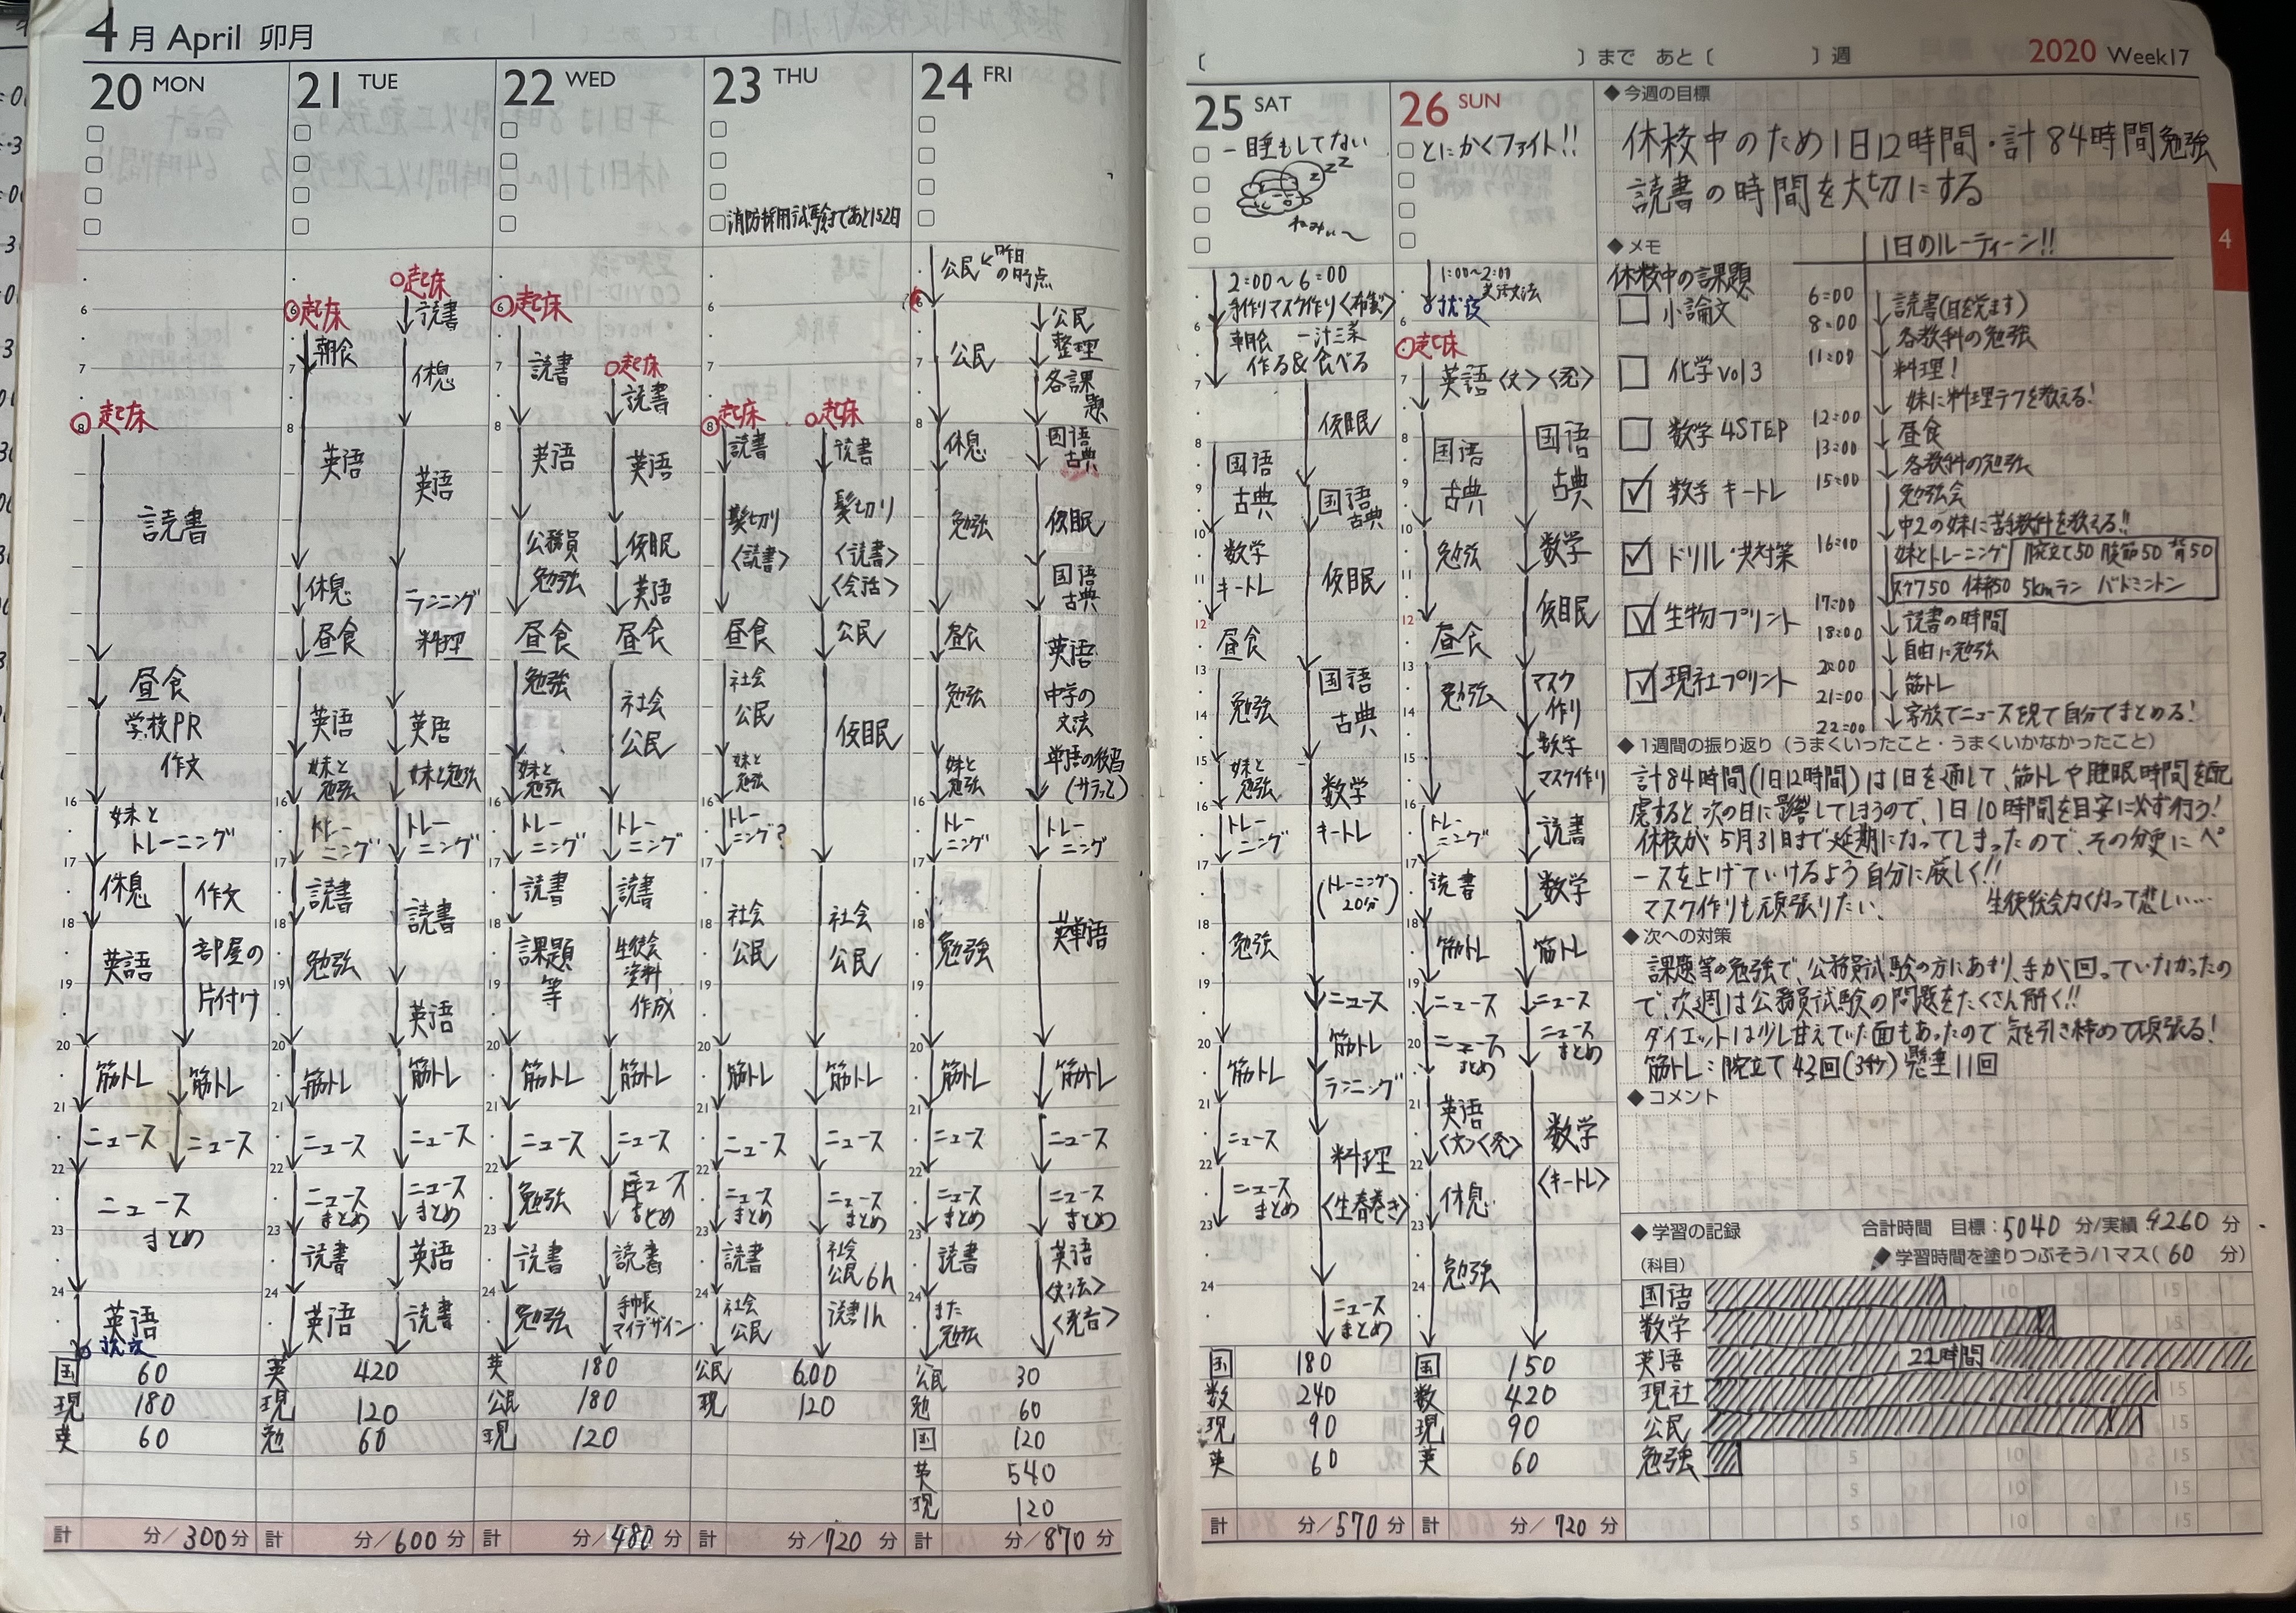 4月 April 卯月
20 MON
起床
読書
昼食
学校PR
作文
妹と
トレーニング
休息
作文
英語
部屋の
片付け
筋トレ
筋トレ
ニュース
ニュース
ニュース
まとめ
英語
就寝
国 60
現 180
英 60
計 分/300分
21 TUE
起床
朝食
英語
休息
昼食
英語
妹と
勉強
トレー
ニング
読書
勉強
筋トレ
ニュース
ニュース
まとめ
読書
英語
起床
読書
休息
英語
ランニング
料理
英語
妹と勉強
トレー
ニング
読書
英語
筋トレ
ニュース
ニュース
まとめ
英語
読書
英 420
現 120
勉 60
計 分/600分
22 WED
起床
読書
英語
公務員
勉強
昼食
勉強
妹と
勉強
トレー
ニング
読書
課題
等
筋トレ
ニュース
勉強
読書
勉強
起床
読書
英語
仮眠
英語
昼食
社会
公民
トレー
ニング
読書
生徒会
資料
作成
筋トレ
ニュース
ニュース
まとめ
読書
手帳
マイデザイン
英 180
公民 180
現 120
計 分/480分
23 THU
消防採用試験まであと152日
起床
読書
髪切り
〈読書〉
昼食
社会
公民
妹と
勉強
トレー
ニング?
社会
公民
筋トレ
ニュース
ニュース
まとめ
読書
社会
公民
起床
読書
髪切り
〈読書〉
〈会話〉
公民
仮眠
社会
公民
筋トレ
ニュース
ニュース
まとめ
社会
公民6h
読書1h
公民 600
現 120
計 分/720分
24 FRI
公民←昨日
の時点
公民
休息
勉強
昼食
勉強
妹と
勉強
トレー
ニング
勉強
筋トレ
ニュース
ニュース
まとめ
読書
また
勉強
公民
整理
各課
題
国語
古典
仮眠
国語
古典
英語
中学の
文法
単語の復習
(サラッと)
トレー
ニング
英単語
筋トレ
ニュース
ニュース
まとめ
英語
〈文法〉
〈発音〉
公民 30
勉 60
国 120
英 540
現 120
計 分/870分
〔 〕まで あと〔 〕週 2020 Week17
25 SAT
一睡もしてない
zzz
ねみぃ〜
2:00〜6:00
手作りマスク作り〈布製〉
朝食 一汁三菜
作る&食べる
国語
古典
数学
キートレ
昼食
勉強
妹と
勉強
トレー
ニング
勉強
筋トレ
ニュース
ニュース
まとめ
仮眠
国語
古典
仮眠
国語
古典
数学
キートレ
(トレーニング
20分)
ニュース
筋トレ
ランニング
料理
〈生春巻き〉
ニュース
まとめ
国 180
数 240
現 90
英 60
計 分/570分
26 SUN
とにかくファイト!!
1:00〜2:00
英語文法
就寝
起床
英語〈文〉〈発〉
国語
古典
勉強
昼食
勉強
トレー
ニング
読書
筋トレ
ニュース
ニュース
まとめ
英語
〈文〉〈発〉
休息
勉強
国語
古典
数学
仮眠
マスク
作り
数学
マスク作り
読書
数学
筋トレ
ニュース
ニュース
まとめ
数学
〈キートレ〉
国 150
数 420
現 90
英 60
計 分/720分
◆今週の目標
休校中のため1日12時間・計84時間勉強
読書の時間を大切にする
◆メモ
休校中の課題
小論文
化学vol3
数学4STEP
数学キートレ
ドリル・共対策
生物プリント
現社プリント
1日のルーティーン!!
6:00
読書(目を覚ます)
8:00
各教科の勉強
11:00
料理!
妹に料理テクを教える!
12:00
昼食
13:00
各教科の勉強
15:00
勉強会
中2の妹に苦手教科を教える!!
16:00
妹とトレーニング 腕立て50 腹筋50 背50
スクワ50 体幹50 5kmラン バドミントン
17:00
読書の時間
18:00
自由に勉強
20:00
筋トレ
21:00
家族でニュースを見て自分でまとめる!
22:00
◆1週間の振り返り(うまくいったこと・うまくいかなかったこと)
計84時間(1日12時間)は1日を通して、筋トレや睡眠時間を配
慮すると次の日に影響してしまうので、1日10時間を目安に必ず行う!
休校が5月31日まで延期になってしまったので、その分更にペ
ースを上げていけるよう自分に厳しく!!
マスク作りも頑張りたい、 生徒総会力くなって悲しい…
◆次への対策
課題等の勉強で、公務員試験の方にあまり、手が回っていなかったの
で、次週は公務員試験の問題をたくさん解く!!
ダイエットは少し甘えていた面もあったので気を引き締めて頑張る!
筋トレ:腕立て43回(3秒)懸垂11回
◆コメント
◆学習の記録 合計時間 目標:5040分/実績4260分
(科目) 学習時間を塗りつぶそう/1マス(60分)
国語
数学
英語 22時間
現社
公民
勉強